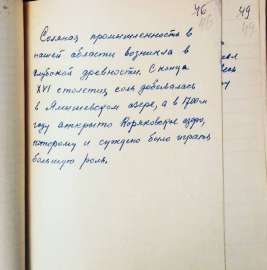 46
49
Соляная промышленность в
нашей области возникла в
глубокой древности. С конца
XVI столетия соль добывалась
в Ямышевском озере, а в 1700м
году открыто Коряковское озеро,
которому и суждено было играть
большую роль.